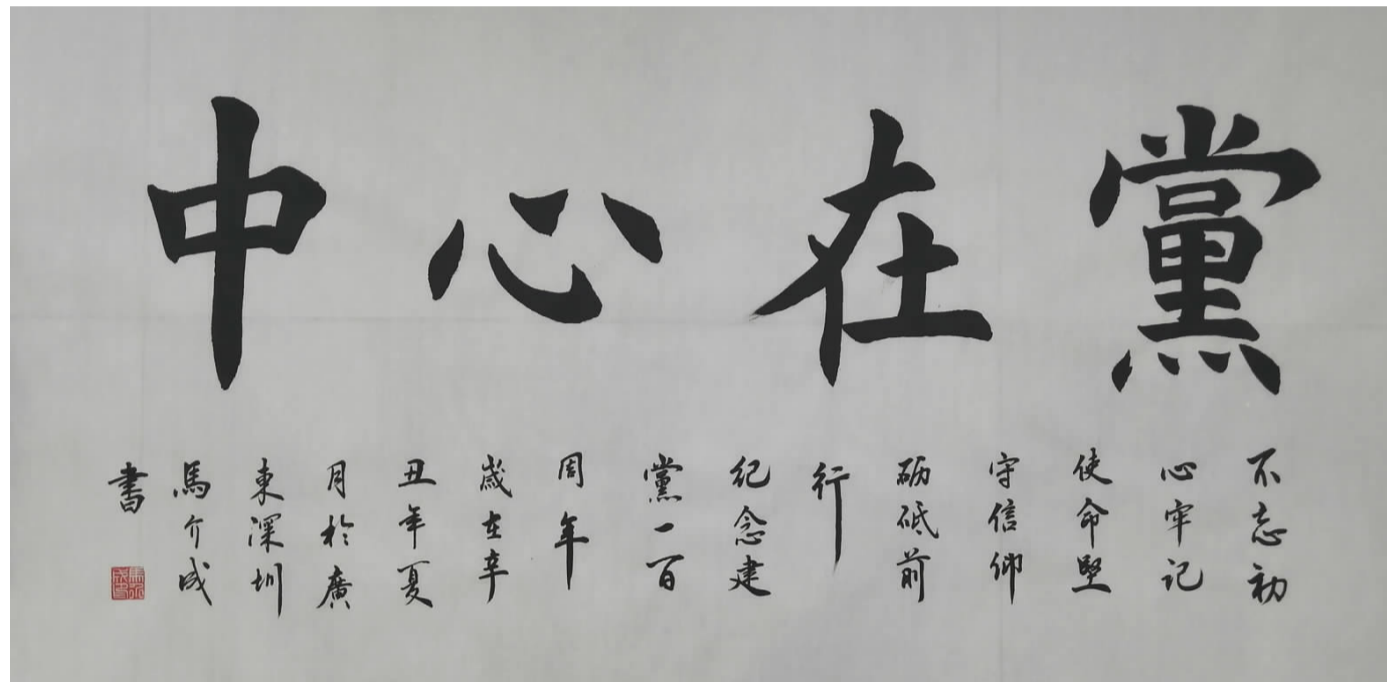 黨在心中
不忘初
心牢记
使命堅
守信仰
砺砥前
行
纪念建
黨一百
周年
歲在辛
丑年夏
月於廣
東深圳
馬介成
書